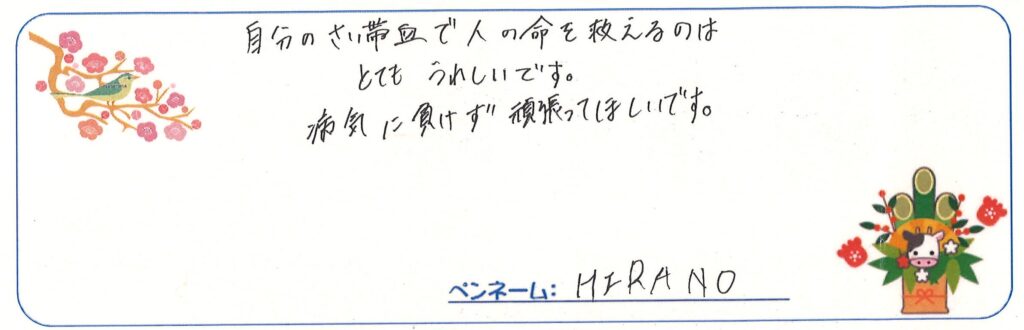 自分のさい帯血で人の命を救えるのは
とても うれしいです。
病気に負けず 頑張ってほしいです。
ペンネーム: HIRANO